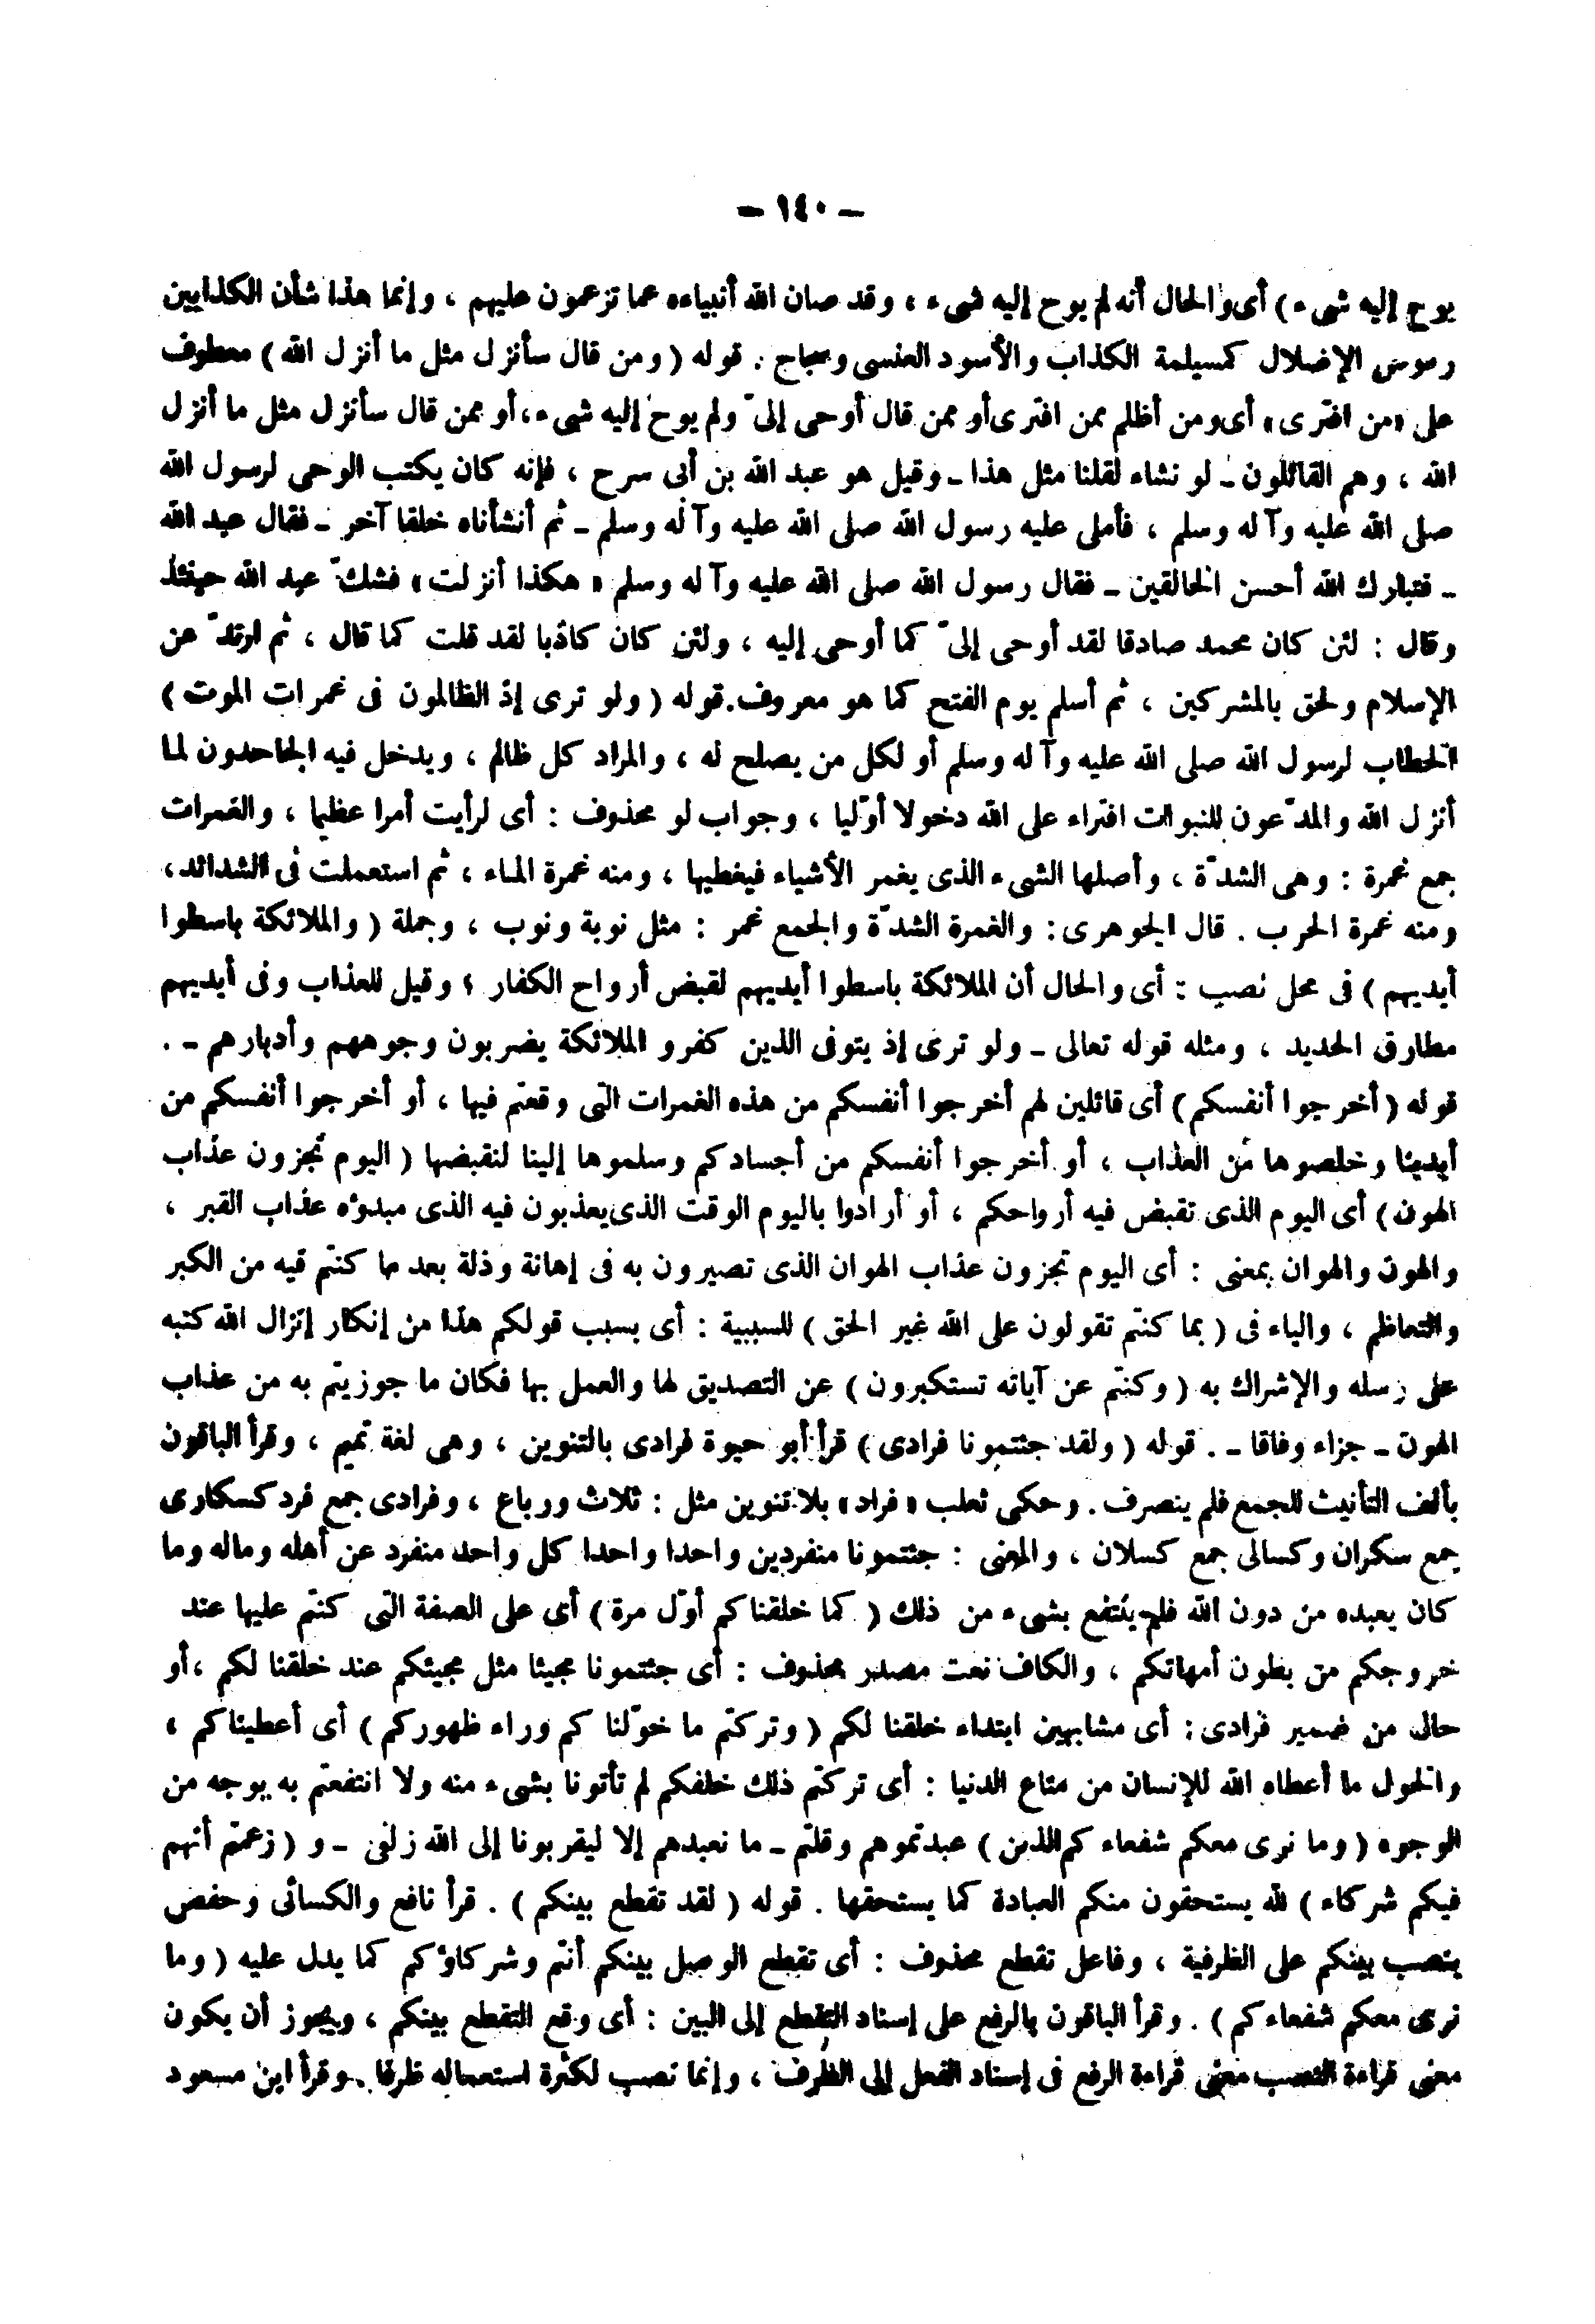 – ١٤٠ –
يوح إليه شيء ) أى والحال أنه لم يوح إليه شيء ، وقد صان الله أنبياءه عما تزعمون عليهم ، وإنما هذا شأن الكذابين
رءوس الإضلال كمسيلمة الكذاب والأسود العنسى وسجاح . قوله ( ومن قال سأنزل مثل ما أنزل الله ) معطوف
على «من افترى» أى ومن أظلم ممن افترى أو ممن قال أوحى إلىّ ولم يوح إليه شيء ، أو ممن قال سأنزل مثل ما أنزل
الله ، وهم القائلون ـ لو نشاء لقلنا مثل هذا ـ وقيل هو عبد الله بن أبى سرح ، فإنه كان يكتب الوحى لرسول الله
صلى الله عليه وآله وسلم ، فأملى عليه رسول الله صلى الله عليه وآله وسلم ـ ثم أنشأناه خلقا آخر ـ فقال عبد الله
ـ فتبارك الله أحسن الخالقين ـ فقال رسول الله صلى الله عليه وآله وسلم « هكذا أنزلت » فشكّ عبد الله حينئذ
وقال : لئن كان محمد صادقا لقد أوحى إلىّ كما أوحى إليه ، ولئن كان كاذبا لقد قلت كما قال ، ثم ارتدّ عن
الإسلام ولحق بالمشركين ، ثم أسلم يوم الفتح كما هو معروف . قوله ( ولو ترى إذ الظالمون فى غمرات الموت )
الخطاب لرسول الله صلى الله عليه وآله وسلم أو لكل من يصلح له ، والمراد كل ظالم ، ويدخل فيه الجاحدون لما
أنزل الله والمدّعون للنبوات افتراء على الله دخولا أوّليا ، وجواب لو محذوف : أى لرأيت أمرا عظيما ، والغمرات
جمع غمرة : وهى الشدّة ، وأصلها الشيء الذى يغمر الأشياء فيغطيها ، ومنه غمرة الماء ، ثم استعملت فى الشدائد ،
ومنه غمرة الحرب . قال الجوهرى : والغمرة الشدّة والجمع غمر : مثل نوبة ونوب ، وجملة ( والملائكة باسطوا
أيديهم ) فى محل نصب : أى والحال أن الملائكة باسطوا أيديهم لقبض أرواح الكفار ؛ وقيل للعذاب وفى أيديهم
مطارق الحديد ، ومثله قوله تعالى ـ ولو ترى إذ يتوفى الذين كفرو الملائكة يضربون وجوههم وأدبارهم ـ .
قوله ( أخرجوا أنفسكم ) أى قائلين لهم أخرجوا أنفسكم من هذه الغمرات التى وقعتم فيها ، أو أخرجوا أنفسكم من
أيدينا وخلصوها من العذاب ، أو أخرجوا أنفسكم من أجسادكم وسلموها إلينا لنقبضها ( اليوم تجزون عذاب
الهون ) أى اليوم الذى تقبض فيه أرواحكم ، أو أرادوا باليوم الوقت الذى يعذبون فيه الذى مبدؤه عذاب القبر ،
والهون والهوان بمعنى : أى اليوم تجزون عذاب الهوان الذى تصيرون به فى إهانة وذلة بعد ما كنتم فيه من الكبر
والتعاظم ، والباء فى ( بما كنتم تقولون على الله غير الحق ) للسببية : أى بسبب قولكم هذا من إنكار إنزال الله كتبه
على رسله والإشراك به ( وكنتم عن آياته تستكبرون ) عن التصديق لها والعمل بها فكان ما جوزيتم به من عذاب
الهون ـ جزاء وفاقا ـ . قوله ( ولقد جئتمونا فرادى ) قرأ أبو حيوة فرادى بالتنوين ، وهى لغة تميم ، وقرأ الباقون
بألف التأنيث للجمع فلم ينصرف . وحكى ثعلب « فراد » بلا تنوين مثل : ثلاث ورباع ، وفرادى جمع فرد كسكارى
جمع سكران وكسالى جمع كسلان ، والمعنى : جئتمونا منفردين واحدا واحدا كل واحد منفرد عن أهله وماله وما
كان يعبده من دون الله فلم ينتفع بشيء من ذلك ( كما خلقناكم أوّل مرة ) أى على الصفة التى كنتم عليها عند
خروجكم من بطون أمهاتكم ، والكاف نعت مصدر محذوف : أى جئتمونا مجيئا مثل مجيئكم عند خلقنا لكم ، أو
حال من ضمير فرادى : أى مشابهين ابتداء خلقنا لكم ( وتركتم ما خوّلناكم وراء ظهوركم ) أى أعطيناكم ،
والخول ما أعطاه الله للإنسان من متاع الدنيا : أى تركتم ذلك خلفكم لم تأتونا بشيء منه ولا انتفعتم به بوجه من
الوجوه ( وما نرى معكم شفعاءكم الذين ) عبدتموهم وقلتم ـ ما نعبدهم إلا ليقربونا إلى الله زلفى ـ و ( زعمتم أنهم
فيكم شركاء ) لله يستحقون منكم العبادة كما يستحقها . قوله ( لقد تقطع بينكم ) . قرأ نافع والكسائى وحفص
بنصب بينكم على الظرفية ، وفاعل تقطع محذوف : أى تقطع الوصل بينكم أنتم وشركاؤكم كما يدل عليه ( وما
نرى معكم شفعاءكم ) . وقرأ الباقون بالرفع على إسناد التقطع إلى البين : أى وقع التقطع بينكم ، ويجوز أن يكون
معنى قراءة النصب معنى قراءة الرفع فى إسناد الفعل إلى الظرف ، وإنما نصب لكثرة استعماله ظرفا . وقرأ ابن مسعود